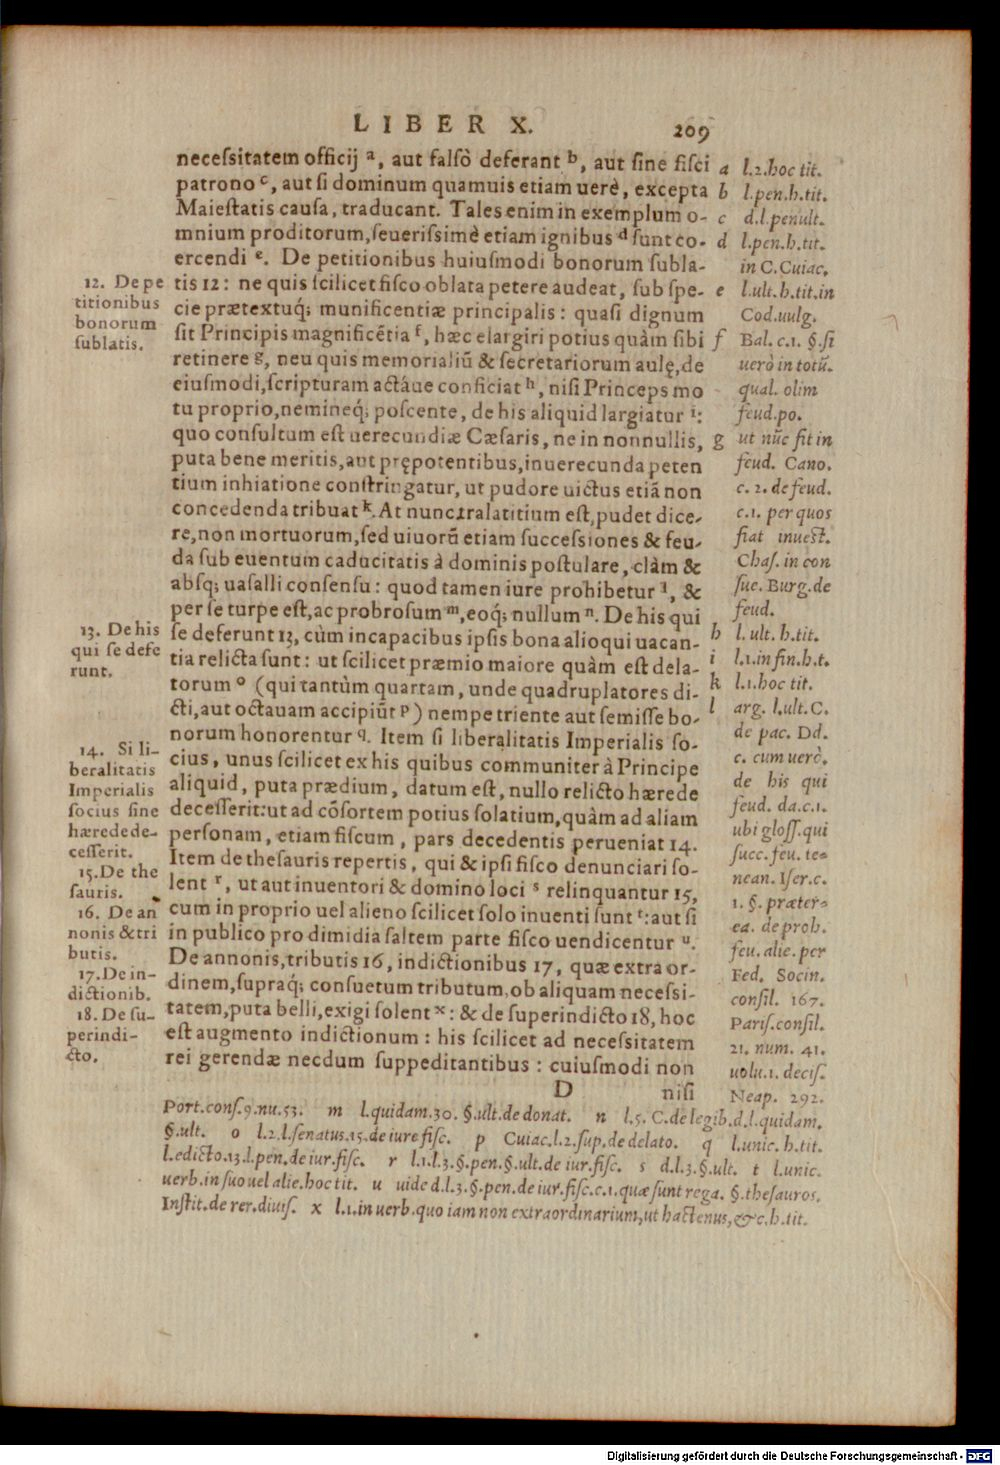 LIBER X. 209
neceſsitatem officij a, aut falsò deferant b, aut ſine fiſci
patrono c, aut ſi dominum quamuis etiam uerè, excepta
Maieſtatis cauſa, traducant. Tales enim in exemplum o-
mnium proditorum, ſeueriſsimè etiam ignibus d ſunt co-
ercendi e. De petitionibus huiuſmodi bonorum ſubla-
tis 12: ne quis ſcilicet fiſco oblata petere audeat, ſub ſpe-
cie prætextuq́; munificentiæ principalis: quaſi dignum
ſit Principis magnificẽtia f, hæc elargiri potius quàm ſibi
retinere g, neu quis memorialiũ & ſecretariorum aulę, de
eiuſmodi, ſcripturam actáue conficiat h, niſi Princeps mo
tu proprio, nemineq́; poſcente, de his aliquid largiatur i:
quo conſultum eſt uerecundiæ Cæſaris, ne in nonnullis,
puta bene meritis, aut prępotentibus, inuerecunda peten
tium inhiatione conſtringatur, ut pudore uictus etiã non
concedenda tribuat k. At nunc tralatitium eſt, pudet dice-
re, non mortuorum, ſed uiuorũ etiam ſucceſsiones & feu-
da ſub euentum caducitatis à dominis poſtulare, clàm &
abſq; uaſalli conſenſu: quod tamen iure prohibetur l, &
per ſe turpe eſt, ac probroſum m, eoq́; nullum n. De his qui
ſe deferunt 13, cùm incapacibus ipſis bona alioqui uacan-
tia relicta ſunt: ut ſcilicet præmio maiore quàm eſt dela-
torum o (qui tantùm quartam, unde quadruplatores di-
cti, aut octauam accipiũt p) nempe triente aut ſemiſſe bo-
norum honorentur q. Item ſi liberalitatis Imperialis ſo-
cius, unus ſcilicet ex his quibus communiter à Principe
aliquid, puta prædium, datum eſt, nullo relicto hærede
deceſſerit: ut ad cõſortem potius ſolatium, quàm ad aliam
perſonam, etiam fiſcum, pars decedentis perueniat 14.
Item de theſauris repertis, qui & ipſi fiſco denunciari ſo-
lent r, ut aut inuentori & domino loci s relinquantur 15,
cum in proprio uel alieno ſcilicet ſolo inuenti ſunt t: aut ſi
in publico pro dimidia ſaltem parte fiſco uendicentur u.
De annonis, tributis 16, indictionibus 17, quæ extra or-
dinem, ſupraq́; conſuetum tributum, ob aliquam neceſsi-
tatem, puta belli, exigi ſolent x: & de ſuperindicto 18, hoc
eſt augmento indictionum: his ſcilicet ad neceſsitatem
rei gerendæ necdum ſuppeditantibus: cuiuſmodi non
D niſi
12. De pe
titionibus
bonorum
ſublatis.
13. De his
qui ſe defe
runt.
14. Si li-
beralitatis
Imperialis
ſocius ſine
hærede de-
ceſſerit.
15. De the
ſauris.
16. De an
nonis & tri
butis.
17. De in-
dictionib.
18. De ſu-
perindi-
cto.
a l.2. hoc tit.
b l.pen.h.tit.
c d.l.penult.
d l.pen.h.tit.
in C. Cuiac.
e l.ult.h.tit.in
Cod.uulg.
f Bal. c.1. §.ſi
uerò in totũ.
qual. olim
feud.po.
g ut nũc fit in
feud. Cano.
c. 2. de feud.
c.1. per quos
fiat inueſt.
Chaſ. in con
ſue. Burg. de
feud.
h l. ult. h.tit.
i l.1.in fin.h.t.
k l.1.hoc tit.
l arg. l.ult.C.
de pac. Dd.
c. cum uerò.
de his qui
feud. da.c.1.
ubi gloſſ.qui
ſucc. feu. te-
nean. Iſer.c.
1. §. præter-
ea. de proh.
feu. alie. per
Fed. Socin.
conſil. 167.
Pariſ. conſil.
21. num. 41.
uolu.1. deciſ.
Neap. 292.
Port.conſ.9.nu.53. m l.quidam.30. §.ult.de donat. n l.5. C.de legib.d.l.quidam.
§.ult. o l.2.l.ſenatus.15.de iure fiſc. p Cuiac.l.2.ſup.de delato. q l.unic.h.tit.
l.edicto.13.l.pen.de iur.fiſc. r l.1.l.3.§.pen.§.ult.de iur.fiſc. s d.l.3.§.ult. t l.unic.
uerb.in ſuo uel alie.hoc tit. u uide d.l.3.§.pen.de iur.fiſc.c.1.quæ ſunt rega. §.theſauros.
Inſtit.de rer.diuiſ. x l.1.in uerb.quo iam non extraordinarium, ut hactenus, &c.h.tit.
Digitalisierung gefördert durch die Deutsche Forschungsgemeinschaft - DFG